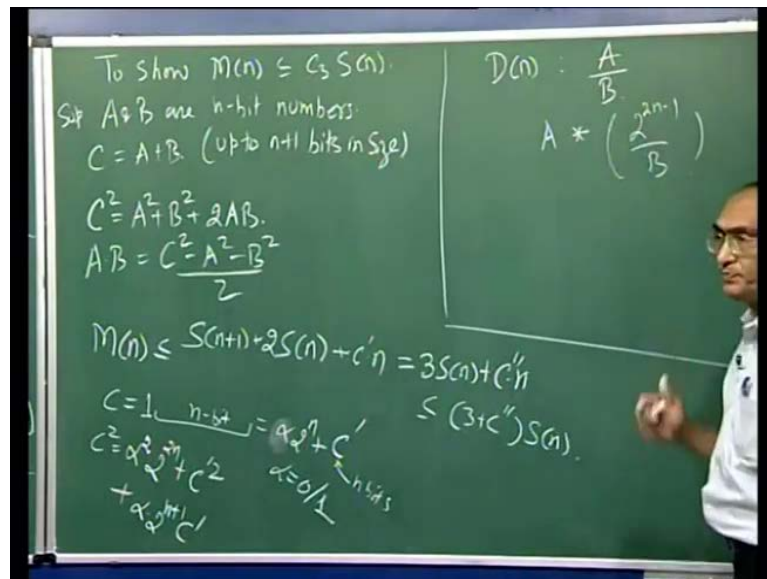 To show M(n) ≤ C₃ S(n).
Sup A & B are n-bit numbers.
C = A+B. (up to n+1 bits in Size)
C² = A² + B² + 2AB.
A·B = C² - A² - B²
2
M(n) ≤ S(n+1) + 2S(n) + C'n = 3S(n) + C''n
≤ (3+C'')S(n).
C = 1 n-bit = α2ⁿ + C'
α = 0/1
n bits
C² = α² 2²ⁿ + C'²
+ α·2ⁿ⁺¹ C'
D(n) : A
B
A * (2²ⁿ⁻¹
B)